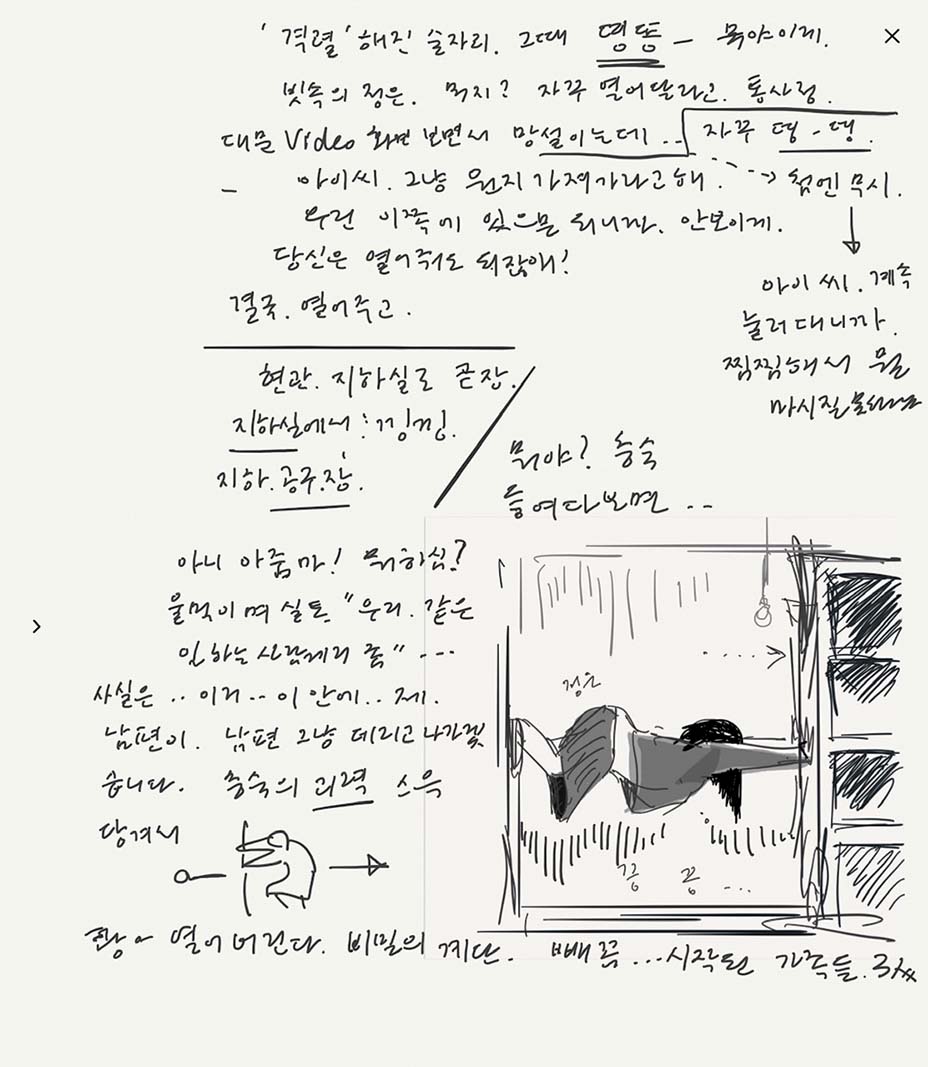 '격렬'해진 술자리. 그때 띵똥 — 뭐야이게.
빗속의 정은. 뭐지? 자꾸 열어달라고. 통사정.
대문 Video 화면 보면서 망설이는데... 자꾸 띵-띵.
— 아이씨. 그냥 뭔지 가져가라고 해. ---> 첨엔 무시.
우린 이쪽에 있으믄 되니까. 안보이게.
당신은 열어줘도 되잖애!
결국. 열어주고.
아이 씨. 계속
눌러대니까.
찜찜해서 뭘
마시질
현관. 지하실로 곧장.
지하실에서: 낑낑.
지하.공주.장.
뭐야? 충숙
들여다보면 ..
아니 아줌마! 뭐하심?
울먹이며 실토 "우리. 같은
일하는 사람께리 좀" ---
사실은 .. 이거 .. 이 안에.. 제.
남편이. 남편 그냥 데리고 나가겠
습니다. 충숙의 괴력 스윽
당겨서
정은
끙 끙 ...
쾅~ 열어버린다. 비밀의 계단. 빼꼼 ...시작된 가족들.